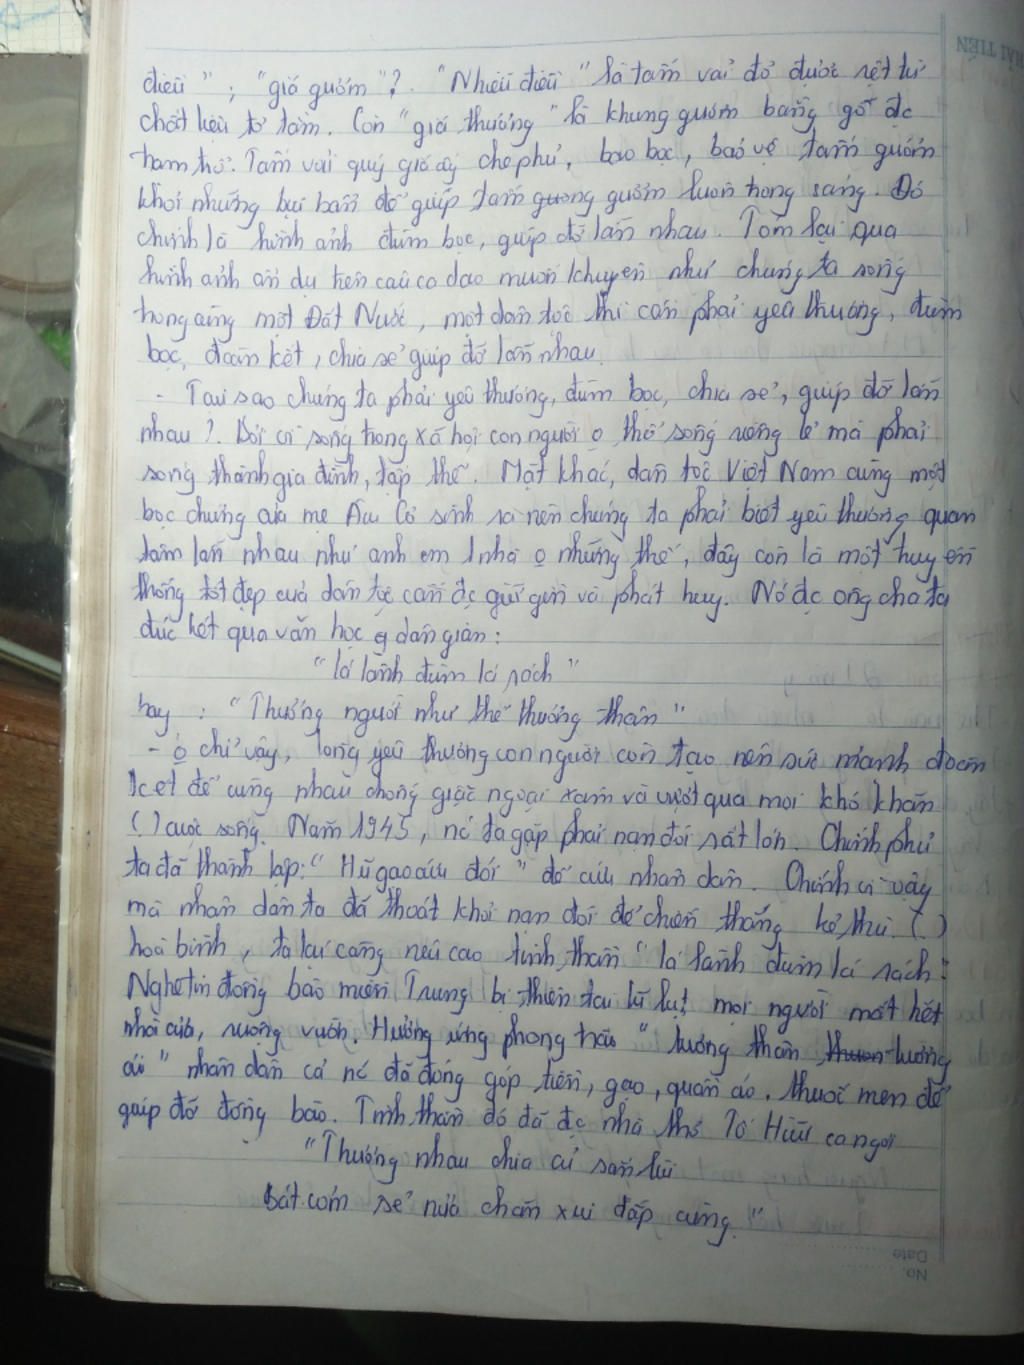 điều" ; "giá gương"? "Nhiễu điều" là tấm vải đỏ được dệt từ
chất liệu tơ tằm. Còn "giá thương" là khung gương bằng gỗ đc
trạm trổ. Tấm vải quý giá ấy che phủ, bao bọc, bảo vệ tấm gương
khỏi những bụi bẩn để giúp tấm gương gươm luôn trong sáng. Đó
chính là hình ảnh đùm bọc, giúp đỡ lẫn nhau. Tóm lại qua
hình ảnh ẩn dụ trên câu ca dao muốn khuyên như chúng ta sống
trong cùng một Đất Nước, một dân tộc thì cần phải yêu thương, đùm
bọc, đoàn kết, chia sẻ giúp đỡ lẫn nhau.
- Tại sao chúng ta phải yêu thương, đùm bọc, chia sẻ, giúp đỡ lẫn
nhau? Bởi vì sống trong xã hội con người o thể sống riêng lẻ mà phải
sống thành gia đình, tập thể. Mặt khác, dân tộc Việt Nam cùng một
bọc chứng của mẹ Âu Cơ sinh ra nên chúng ta phải biết yêu thương quan
tâm lẫn nhau như anh em 1 nhà o những thế, đây còn là một truyền
thống tốt đẹp của dân tộc cần đc giữ gìn và phát huy. Nó đc ông cha ta
đúc kết qua văn học dân gian:
"lá lành đùm lá rách"
hay : "Thương người như thể thương thân"
- o chỉ vậy, lòng yêu thương con người còn tạo nên sức mạnh đoàn
kết để cùng nhau chống giặc ngoại xâm và vượt qua mọi khó khăn
( ) cuộc sống. Năm 1945, nc ta gặp phải nạn đói rất lớn. Chính phủ
ta đã thành lập: "Hũ gạo cứu đói" để cứu nhân dân. Chính vì vậy
mà nhân dân ta đã thoát khỏi nạn đói để chiến thắng kẻ thù. ( )
hoà bình, ta lại càng nêu cao tinh thần "lá lành đùm lá rách".
Nghe tin đồng bào miền Trung bị thiên tai lũ lụt, mọi người mất hết
nhà cửa, ruộng vườn. Hưởng ứng phong trào "tương thân tương
ái" nhân dân cả nc đã đóng góp tiền, gạo, quần áo, thuốc men để
giúp đỡ đồng bào. Tinh thần đó đã đc nhà thơ Tố Hữu ca ngợi
"Thương nhau chia củ sắn lùi
Bát cơm sẻ nửa chăn xui đắp cùng."
No.
Date
HẢI TIẾN